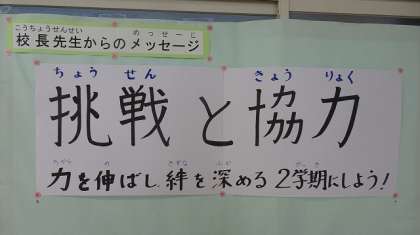 こうちょうせんせい めっせーじ
校長先生からのメッセージ
ちょう せん きょう りょく
挑戦と協力
ちから の きずな ふか がっき
力を伸ばし 絆を深める 2学期にしよう!